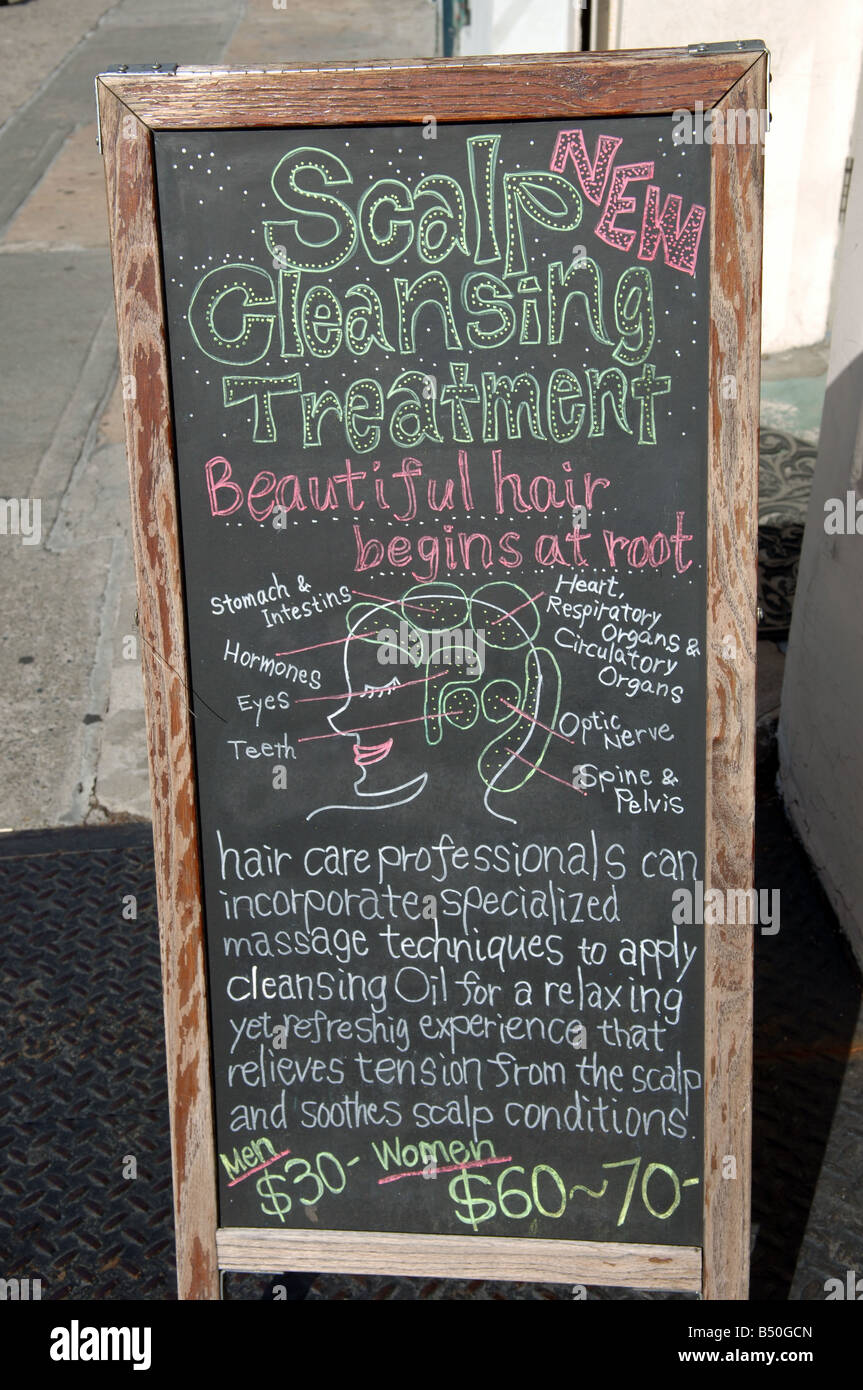 Scalp
NEW
Cleansing
Treatment
Beautiful hair
begins at root
Stomach &
Intestins
Hormones
Eyes
Teeth
Heart,
Respiratory
Organs &
Circulatory
Organs
Optic
Nerve
Spine &
Pelvis
hair care professionals can
incorporate specialized
massage techniques to apply
cleansing Oil for a relaxing
yet refreshig experience that
relieves tension from the scalp
and soothes scalp conditions.
Men $30- Women $60~70-
alamy
B50GCN
www.alamy.com